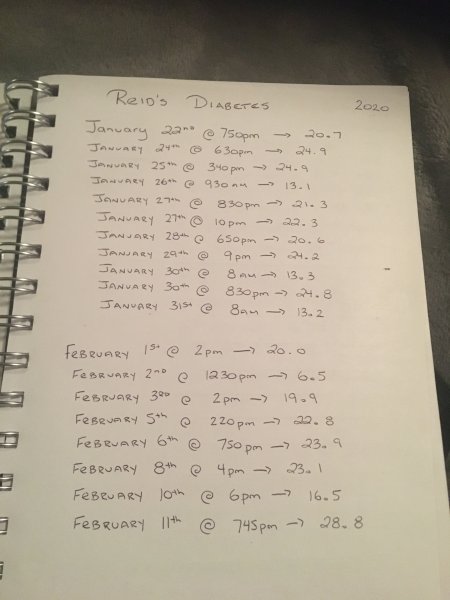 REID'S DIABETES 2020
JANUARY 22nd @ 750pm → 20.7
JANUARY 24th @ 630pm → 24.9
JANUARY 25th @ 340pm → 24.9
JANUARY 26th @ 930AM → 13.1
JANUARY 27th @ 830pm → 21.3
JANUARY 27th @ 10pm → 22.3
JANUARY 28th @ 650pm → 20.6
JANUARY 29th @ 9pm → 24.2
JANUARY 30th @ 8AM → 13.3
JANUARY 30th @ 830pm → 24.8
JANUARY 31st @ 8AM → 13.2
FEBRUARY 1st @ 2pm → 20.0
FEBRUARY 2nd @ 1230pm → 6.5
FEBRUARY 3RD @ 2pm → 19.9
FEBRUARY 5th @ 220pm → 22.8
FEBRUARY 6th @ 750pm → 23.9
FEBRUARY 8th @ 4pm → 23.1
FEBRUARY 10th @ 6pm → 16.5
FEBRUARY 11th @ 745pm → 28.8